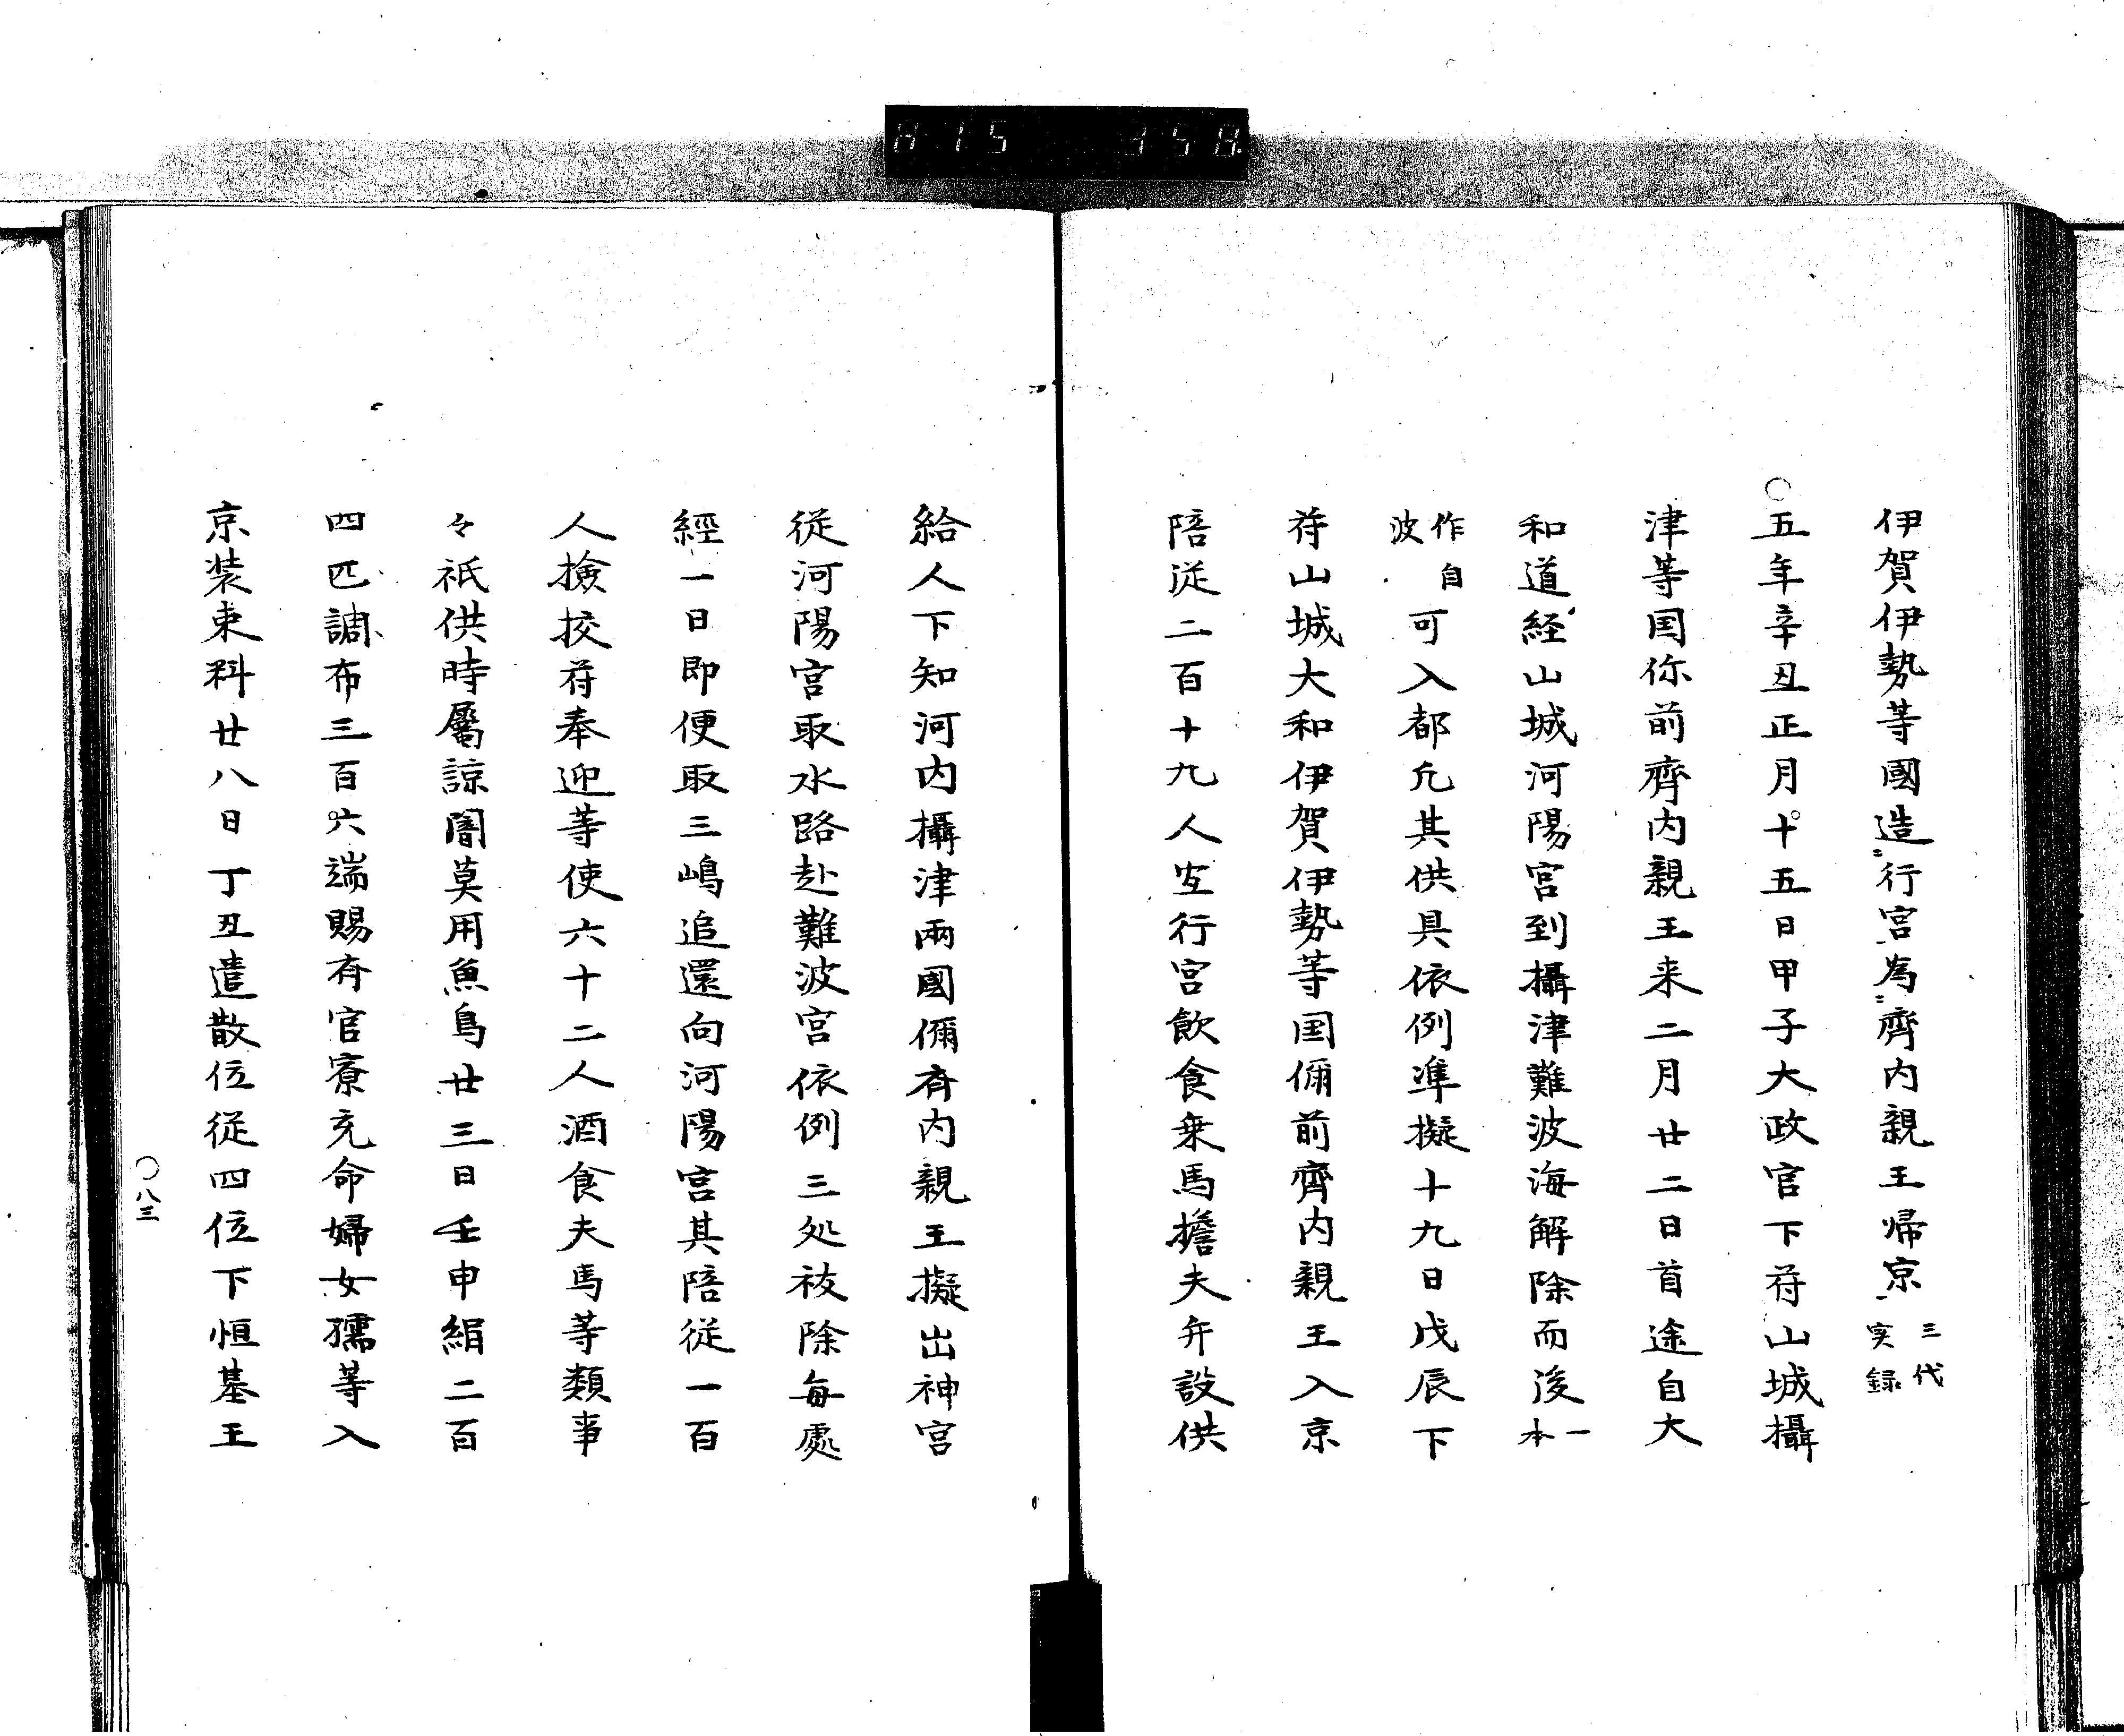 伊賀伊勢等國造行宮為齊内親王帰京三代実録
〇五年辛丑正月十五日甲子大政官下符山城攝
津等国你前齊内親王来二月廿二日首途自大
和道経山城河陽宮到攝津難波海解除而後一本
作自波可入都凢其供具依例準擬十九日戊辰下
符山城大和伊賀伊勢等国俻前齊内親王入京
陪従二百十九人宜行宮飲食乗馬擔夫弁設供
給人下知河内攝津兩國俻斉内親王擬出神宮
従河陽宮取水路赴難波宮依例三処祓除毎處
經一日即便取三嶋追還向河陽宮其陪従一百
人撿挍符奉迎等使六十二人酒食夫馬等類事
々祇供時屬諒闇莫用魚鳥廿三日壬申絹二百
四匹調布三百六端賜斉官寮充命婦女孺等入
京装束料廿八日丁丑遣散位従四位下恒基王
〇八三
815 358